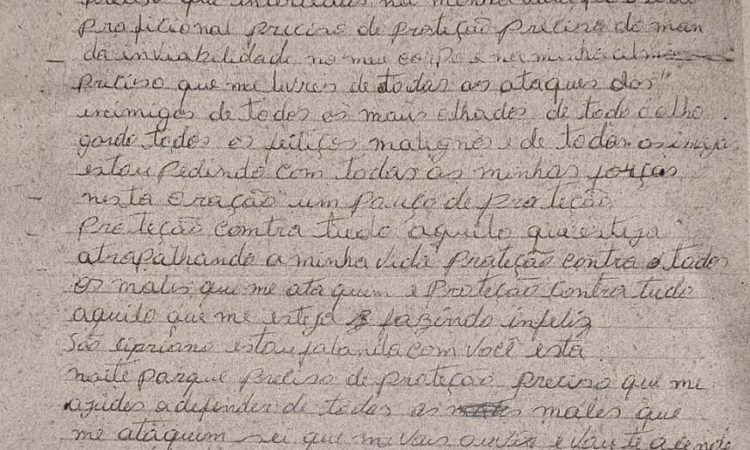 preciso que interceda na minha vida
Proficional preciso de proteção preciso do man
da inviabelidade no meu corpo e na minha alma
Preciso que me livres de todas as ataques dos
inimigos de todos os maus olhados de todo o olho
gordo todos os feitiços malignos e de todas as invejas
estou pedindo com todas as minhas forças
nesta oração um pouço de proteção
Proteção comtra tudo aquilo que esteja
atrapalhando a minha vida Proteção contra todos
os males que me ataquem e Proteção contra tudo
aquilo que me esteja fazindo infeliz
São Cipriano estou falando com você esta
noite porque preciso de proteção preciso que me
ajudes a defender de todos os males que
me ataquem sei que me vais ouvir e vou te acende